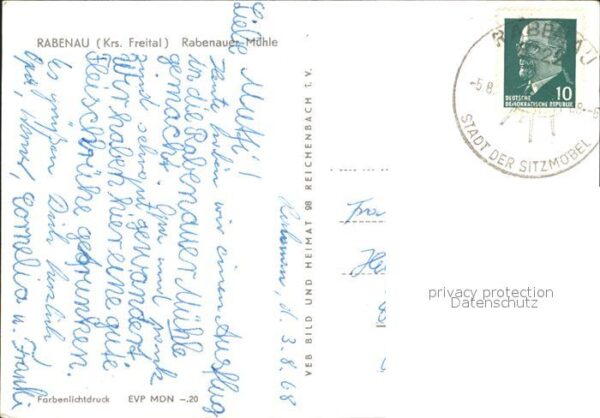 RABENAU (Krs. Freital) Rabenauer Mühle
Liebe Mutti!
Heute haben wir einen Ausflug
in die Rabenauer Mühle
gemacht. Opa und Frank
sind schon gewandert.
Wir haben hier eine gute
Fleischbrühe getrunken.
Es grüßen Dich herzlich
Opa, Cornelia u. Frank
d. 3.8.68
Farbenlichtdruck EVP MDN -.20
VEB BILD UND HEIMAT 98 REICHENBACH I. V.
RABENAU
-5.8.
STADT DER SITZMÖBEL
10
DEUTSCHE
DEMOKRATISCHE REPUBLIK
privacy protection
Datenschutz